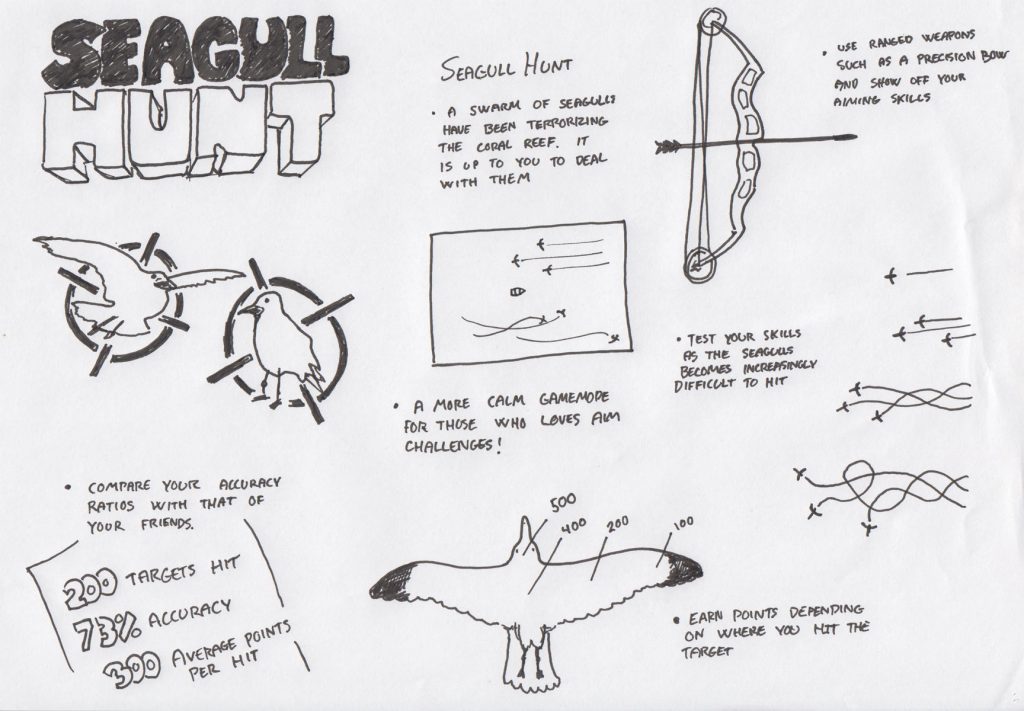 SEAGULL
HUNT
SEAGULL HUNT
• A SWARM OF SEAGULLS
HAVE BEEN TERRORIZING
THE CORAL REEF. IT
IS UP TO YOU TO DEAL
WITH THEM
• USE RANGED WEAPONS
SUCH AS A PRECISION BOW
AND SHOW OFF YOUR
AIMING SKILLS
• TEST YOUR SKILLS
AS THE SEAGULLS
BECOMES INCREASINGLY
DIFFICULT TO HIT
• A MORE CALM GAMEMODE
FOR THOSE WHO LOVES AIM
CHALLENGES!
• COMPARE YOUR ACCURACY
RATIOS WITH THAT OF
YOUR FRIENDS.
200 TARGETS HIT
73% ACCURACY
300 AVERAGE POINTS
PER HIT
500
400
200
100
• EARN POINTS DEPENDING
ON WHERE YOU HIT THE
TARGET